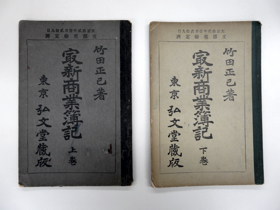 竹田正己著
最新商業簿記
上巻
東京 弘文堂蔵版
竹田正己著
最新商業簿記
下巻
東京 弘文堂蔵版